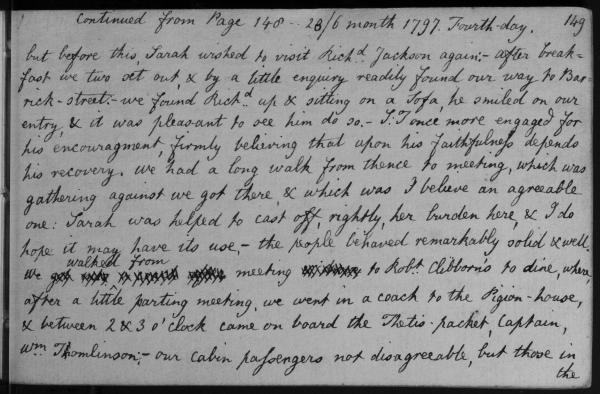 Continued from Page 148 -- 28/6 month 1797. Fourth-day. 149
but before this, Sarah wished to visit Richd. Jackson again:- after break-
fast we two set out, & by a little enquiry readily found our way to Bar-
rick-street:- we found Richd. up & sitting on a Sofa, he smiled on our
entry, & it was pleasant to see him do so.- S:T once more engaged for
his encouragment, firmly believing that upon his faithfulness depends
his recovery. we had a long walk from thence to meeting, which was
gathering against we got there, & which was I believe an agreeable
one: Sarah was helped to cast off, rightly, her burden here, & I do
hope it may have its use,- the people behaved remarkably solid & well.
walked from
We meeting to Robt. Clibborn's to dine, where,
after a little parting meeting, we went in a coach to the Pigion-house,
& between 2 & 3 o'clock came on board the Thetis-packet, Captain,
Wm Thomlinson:- our cabin passengers not disagreeable, but those in
the